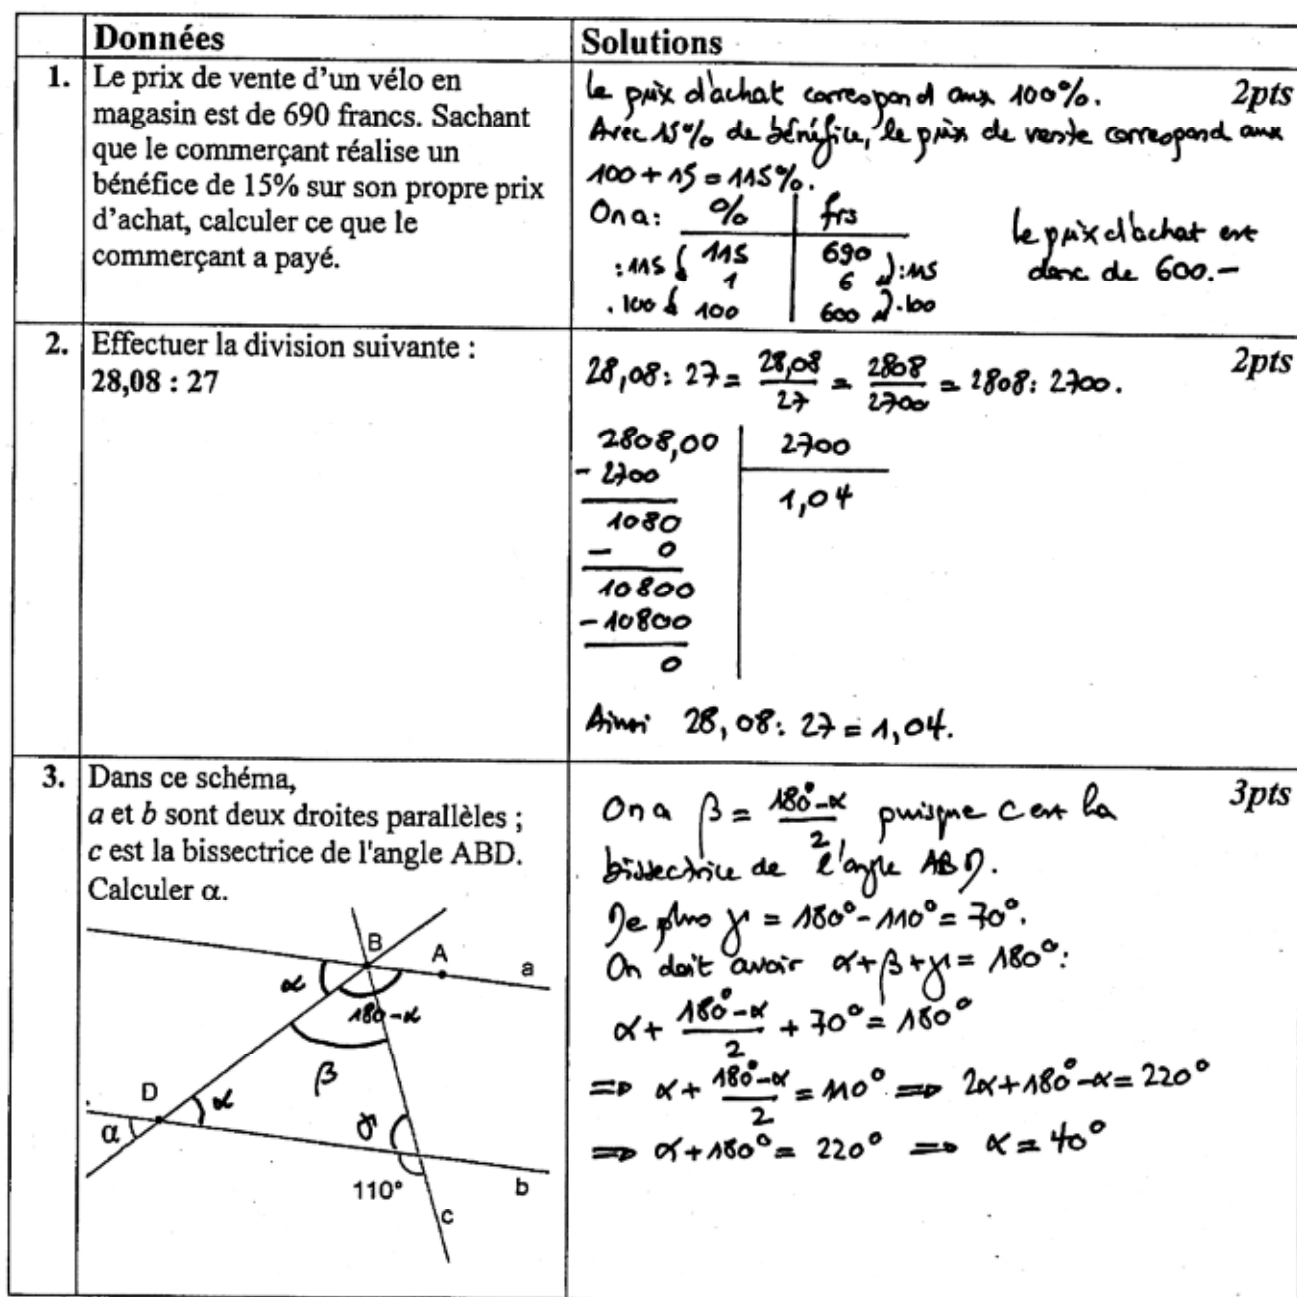 Données
Solutions
1. Le prix de vente d'un vélo en
magasin est de 690 francs. Sachant
que le commerçant réalise un
bénéfice de 15% sur son propre prix
d'achat, calculer ce que le
commerçant a payé.
Le prix d'achat correspond aux 100%. 2pts
Avec 15% de bénéfice, le prix de vente correspond aux
100 + 15 = 115%.
On a: % frs
:115 115 690 :115
1 6
.100 100 600 .100
Le prix d'achat est
donc de 600.-
2. Effectuer la division suivante :
28,08 : 27
28,08 : 27 = 28,08/27 = 2808/2700 = 2808 : 2700. 2pts
2808,00 2700
- 2700 1,04
1080
- 0
10800
- 10800
0
Ainsi 28,08 : 27 = 1,04.
3. Dans ce schéma,
a et b sont deux droites parallèles ;
c est la bissectrice de l'angle ABD.
Calculer α.
B
A
a
α
180-α
β
D
α
α
γ
110°
b
c
On a β = (180°-α)/2 puisque c est la 3pts
bissectrice de l'angle ABD.
De plus γ = 180° - 110° = 70°.
On doit avoir α+β+γ = 180° :
α + (180°-α)/2 + 70° = 180°
=> α + (180°-α)/2 = 110° => 2α+180°-α = 220°
=> α+180° = 220° => α = 40°